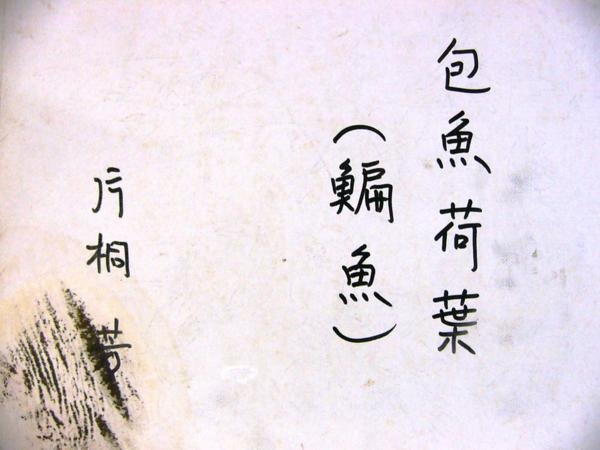 包魚荷葉
（鯿魚）
片桐芳